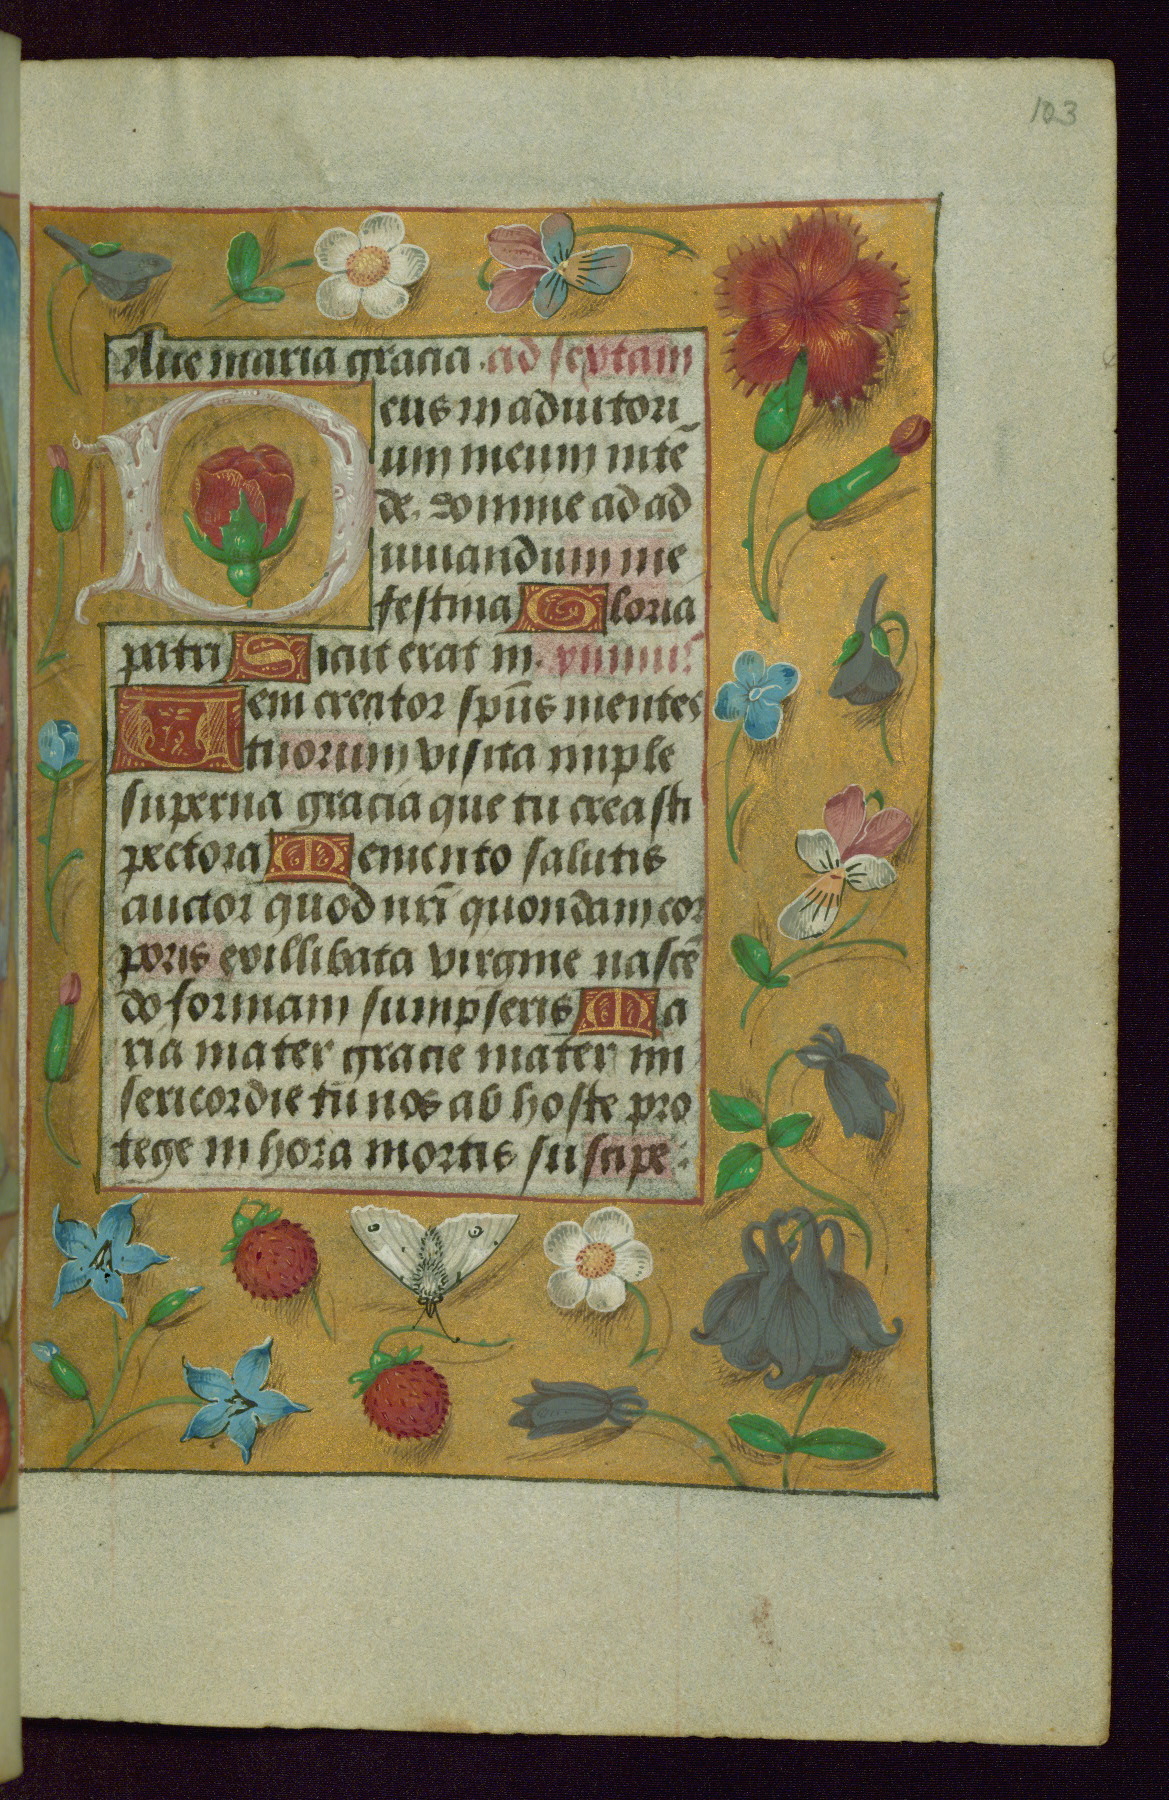 103
Aue maria gracia ad sextam
Deus in adiutori
um meum intē
de. domine ad ad
iuuandum me
festina Gloria
patri Sicut erat in. ymnu
Ueni creator spūs mentes
tuorum visita imple
superna gracia que tu creasti
pectora Memento salutis
auctor quod nrī quondam cor
poris ex illibata virgine nascē
do formam sumpseris Ma
ria mater gracie mater mi
sericordie tū nos ab hoste pro
tege in hora mortis suscipe